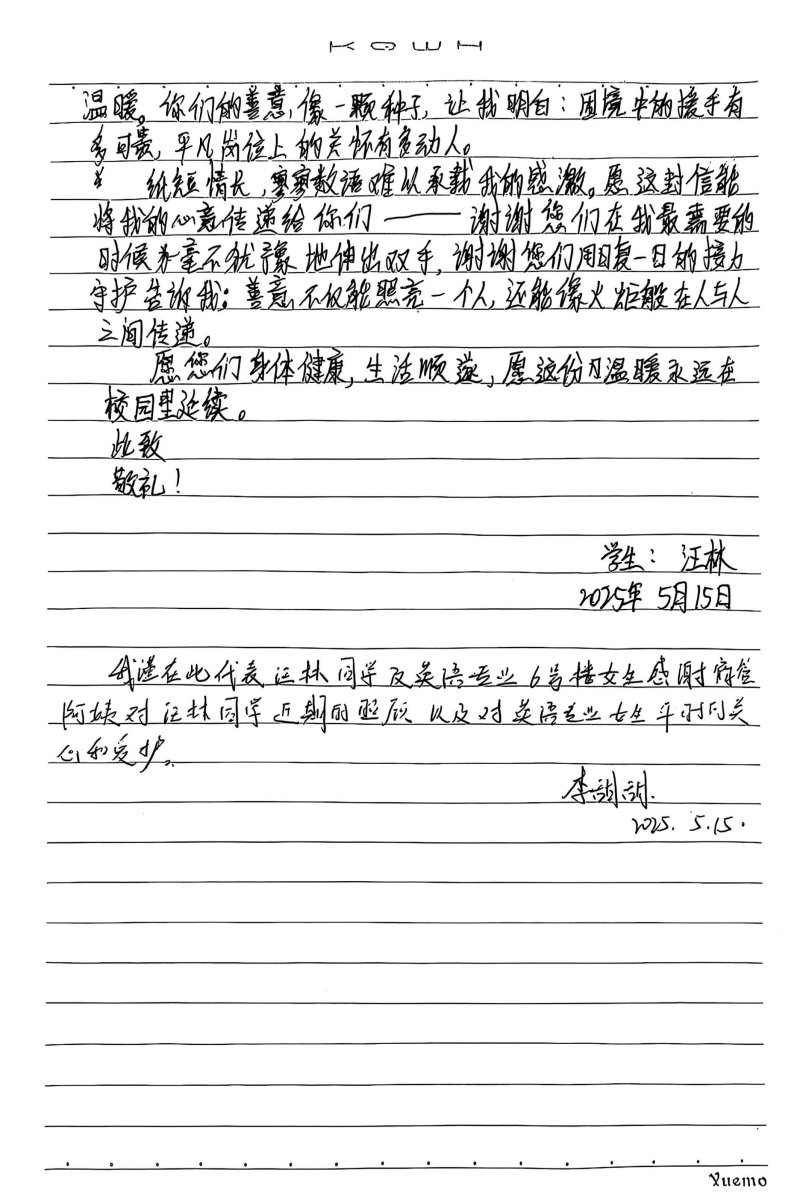 KQWH
温暖。你们的善意,像一颗种子,让我明白:困境中的援手有
多可贵,平凡岗位上的关怀有多动人。
纸短情长,寥寥数语难以承载我的感激。愿这封信能
将我的心意传递给你们——谢谢您们在我最需要的
时候毫不犹豫地伸出双手,谢谢您们用日复一日的接力
守护告诉我:善意不仅能照亮一个人,还能像火炬般在人与人
之间传递。
愿您们身体健康,生活顺遂,愿这份温暖永远在
校园里延续。
此致
敬礼!
学生:汪林
2025年5月15日
我谨在此代表汪林同学及英语专业6号楼女生感谢宿管
阿姨对汪林同学近期的照顾以及对英语专业女生平时的关
心和爱护。
李
2025.5.15.
Yuemo